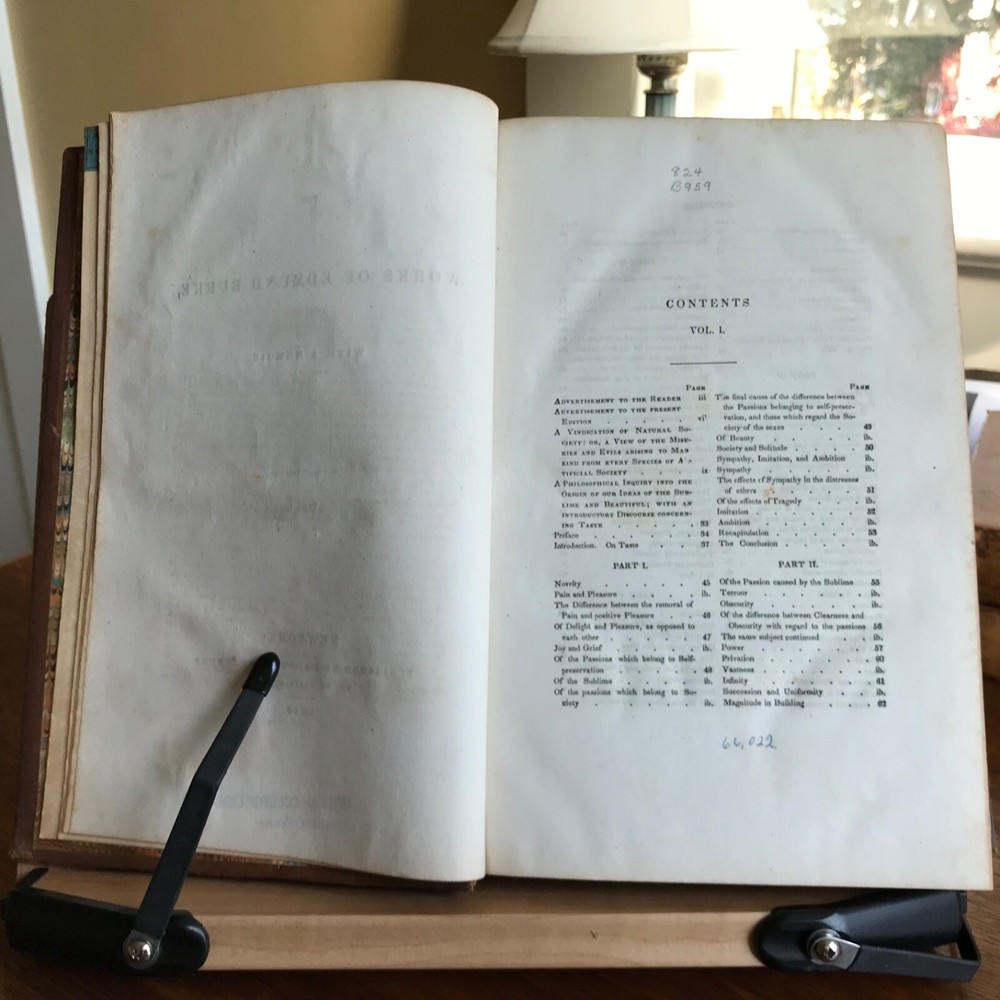 WORKS OF EDMUND BURKE,
WITH A MEMOIR
824
B959
CONTENTS
VOL. I.
PAGE
ADVERTISEMENT TO THE READER iii
ADVERTISEMENT TO THE PRESENT
EDITION . . . . . . vi
A VINDICATION OF NATURAL SO-
CIETY: OR, A VIEW OF THE MISE-
RIES AND EVILS ARISING TO MAN
KIND FROM EVERY SPECIES OF AR-
TIFICIAL SOCIETY . . . ix
A PHILOSOPHICAL INQUIRY INTO THE
ORIGIN OF OUR IDEAS OF THE SUB-
LIME AND BEAUTIFUL; WITH AN
INTRODUCTORY DISCOURSE CONCERN-
ING TASTE . . . . . 33
Preface . . . . . . 34
Introduction. On Taste . . . 37
PART I.
Novelty . . . . . . 45
Pain and Pleasure . . . . ib.
The Difference between the removal of
Pain and positive Pleasure . . 46
Of Delight and Pleasure, as opposed to
each other . . . . . 47
Joy and Grief . . . . . ib.
Of the Passions which belong to Self-
preservation . . . . 48
Of the Sublime . . . . ib.
Of the passions which belong to So-
ciety . . . . . . ib.
PAGE
The final cause of the difference between
the Passions belonging to self-preser-
vation, and those which regard the So-
ciety of the sexes . . . . 49
Of Beauty . . . . . ib.
Society and Solitude . . . . 50
Sympathy, Imitation, and Ambition ib.
Sympathy . . . . . . ib.
The effects of Sympathy in the distresses
of others . . . . . 51
Of the effects of Tragedy . . . ib.
Imitation . . . . . . 52
Ambition . . . . . . ib.
Recapitulation . . . . . 53
The Conclusion . . . . . ib.
PART II.
Of the Passion caused by the Sublime 55
Terrour . . . . . . ib.
Obscurity . . . . . . ib.
Of the difference between Clearness and
Obscurity with regard to the passions 56
The same subject continued . . ib.
Power . . . . . . 57
Privation . . . . . . 60
Vastness . . . . . . ib.
Infinity . . . . . . 61
Succession and Uniformity . . ib.
Magnitude in Building . . . . 62
66,022